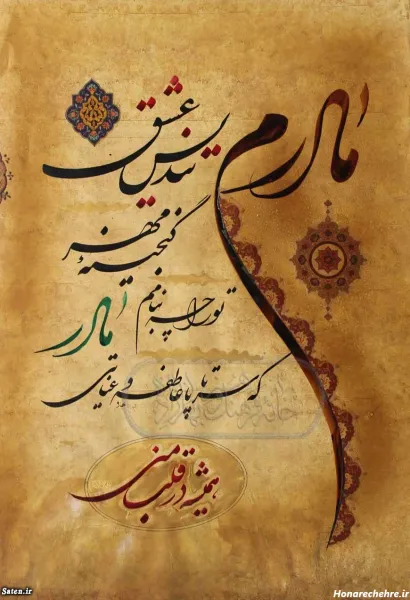 مادرم
تندیس عشق
گنجینهٔ مهر
تو را چه بنامم
مادر
که سرتاپا عاطفه و عنایتی
همیشه در قلب منی
Saten.ir
Honarechehre.ir